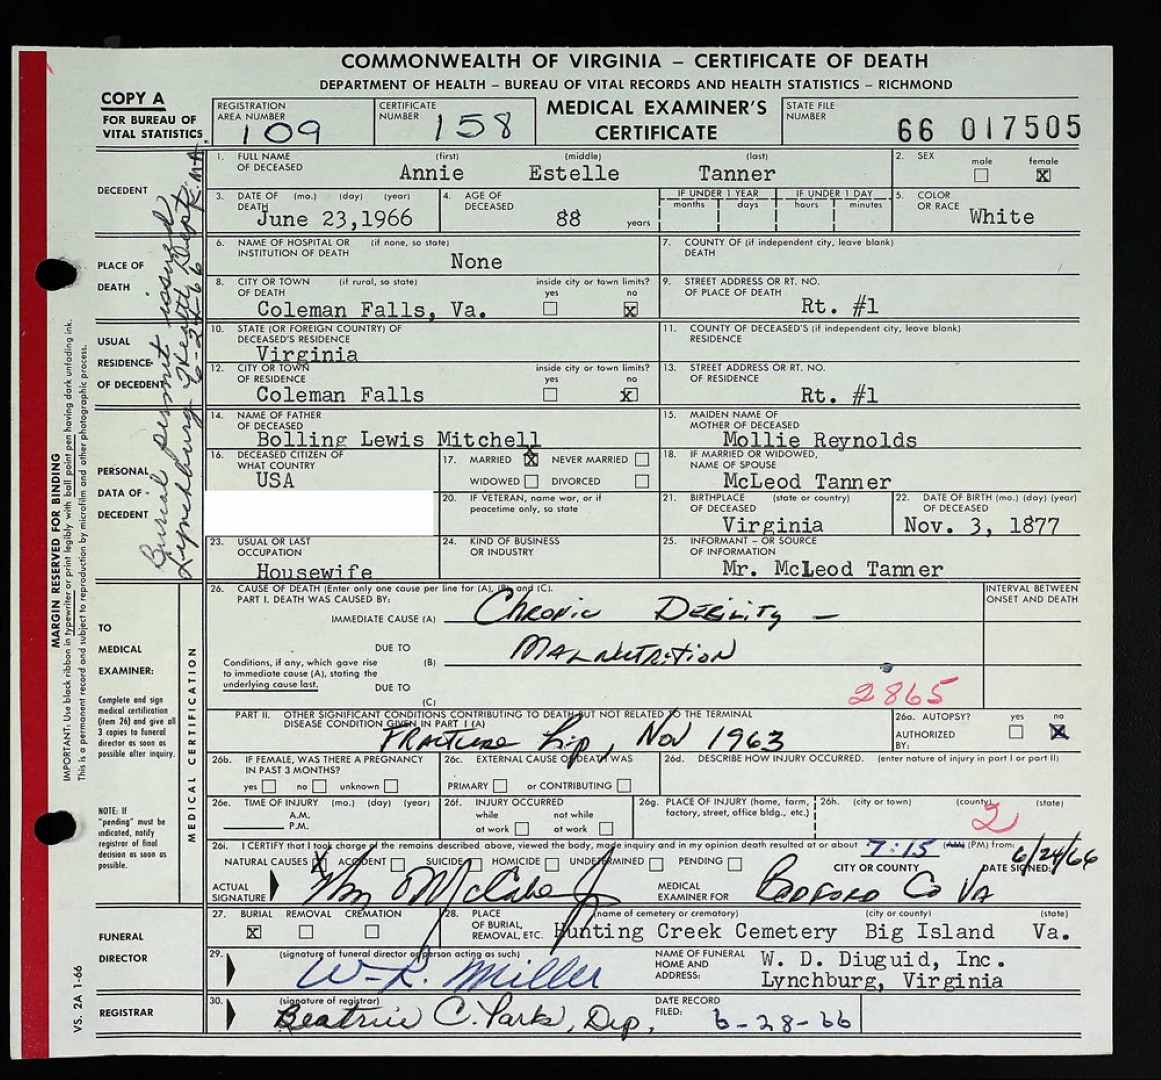 COMMONWEALTH OF VIRGINIA – CERTIFICATE OF DEATH
DEPARTMENT OF HEALTH – BUREAU OF VITAL RECORDS AND HEALTH STATISTICS – RICHMOND
COPY A
FOR BUREAU OF
VITAL STATISTICS
REGISTRATION
AREA NUMBER 109
CERTIFICATE
NUMBER 158
MEDICAL EXAMINER'S
CERTIFICATE
STATE FILE
NUMBER 66 017505
DECEDENT
1. FULL NAME OF DECEASED (first) (middle) (last)
Annie Estelle Tanner
2. SEX male female X
3. DATE OF DEATH (mo.) (day) (year)
June 23,1966
4. AGE OF DECEASED
88 years
IF UNDER 1 YEAR months days
IF UNDER 1 DAY hours minutes
5. COLOR OR RACE
White
PLACE OF
DEATH
6. NAME OF HOSPITAL OR (if none, so state)
INSTITUTION OF DEATH
None
7. COUNTY OF (if independent city, leave blank)
DEATH
8. CITY OR TOWN (if rural, so state)
OF DEATH
inside city or town limits?
yes no X
Coleman Falls, Va.
9. STREET ADDRESS OR RT. NO.
OF PLACE OF DEATH
Rt. #1
USUAL
RESIDENCE
OF DECEDENT
10. STATE (OR FOREIGN COUNTRY) OF
DECEASED'S RESIDENCE
Virginia
11. COUNTY OF DECEASED'S (if independent city, leave blank)
RESIDENCE
12. CITY OR TOWN
OF RESIDENCE
inside city or town limits?
yes no X
Coleman Falls
13. STREET ADDRESS OR RT. NO.
OF RESIDENCE
Rt. #1
PERSONAL
DATA OF
DECEDENT
14. NAME OF FATHER
OF DECEASED
Bolling Lewis Mitchell
15. MAIDEN NAME OF
MOTHER OF DECEASED
Mollie Reynolds
16. DECEASED CITIZEN OF
WHAT COUNTRY
USA
17. MARRIED X NEVER MARRIED
WIDOWED DIVORCED
18. IF MARRIED OR WIDOWED,
NAME OF SPOUSE
McLeod Tanner
20. IF VETERAN, name war, or if
peacetime only, so state
21. BIRTHPLACE (state or country)
OF DECEASED
Virginia
22. DATE OF BIRTH (mo.) (day) (year)
OF DECEASED
Nov. 3, 1877
23. USUAL OR LAST
OCCUPATION
Housewife
24. KIND OF BUSINESS
OR INDUSTRY
25. INFORMANT – OR SOURCE
OF INFORMATION
Mr. McLeod Tanner
Burial permit issued
Lynchburg Health Dept.
6-24-66
MARGIN RESERVED FOR BINDING
IMPORTANT: Use black ribbon in typewriter or print legibly with ball point pen having dark unfading ink.
This is a permanent record and subject to reproduction by microfilm and other photographic process.
TO
MEDICAL
EXAMINER:
Complete and sign
medical certification
(item 26) and give all
3 copies to funeral
director as soon as
possible after inquiry.
NOTE: If
"pending" must be
indicated, notify
registrar of final
decision as soon as
possible.
MEDICAL CERTIFICATION
26. CAUSE OF DEATH (Enter only one cause per line for (A), (B) and (C).
PART I. DEATH WAS CAUSED BY:
INTERVAL BETWEEN
ONSET AND DEATH
IMMEDIATE CAUSE (A) Chronic Debility –
DUE TO
Conditions, if any, which gave rise
to immediate cause (A), stating the
underlying cause last.
(B) Malnutrition
DUE TO
(C)
2865
PART II. OTHER SIGNIFICANT CONDITIONS CONTRIBUTING TO DEATH BUT NOT RELATED TO THE TERMINAL
DISEASE CONDITION GIVEN IN PART I (A)
Fracture hip, Nov 1963
26a. AUTOPSY? yes no X
AUTHORIZED
BY:
26b. IF FEMALE, WAS THERE A PREGNANCY
IN PAST 3 MONTHS?
yes no unknown
26c. EXTERNAL CAUSE OF DEATH WAS
PRIMARY or CONTRIBUTING
26d. DESCRIBE HOW INJURY OCCURRED. (enter nature of injury in part I or part II)
26e. TIME OF INJURY (mo.) (day) (year)
A.M.
P.M.
26f. INJURY OCCURRED
while at work not while at work
26g. PLACE OF INJURY (home, farm,
factory, street, office bldg., etc.)
26h. (city or town) (county) (state)
2
26i. I CERTIFY that I took charge of the remains described above, viewed the body, made inquiry and in my opinion death resulted at or about 7:15 (AM) (PM) from:
NATURAL CAUSES X ACCIDENT SUICIDE HOMICIDE UNDETERMINED PENDING
CITY OR COUNTY
DATE SIGNED: 6/24/66
ACTUAL
SIGNATURE Wm O McCabe Jr
MEDICAL
EXAMINER FOR Bedford Co Va
FUNERAL
DIRECTOR
27. BURIAL X REMOVAL CREMATION
28. PLACE
OF BURIAL,
REMOVAL, ETC.
(name of cemetery or crematory) (city or county) (state)
Hunting Creek Cemetery Big Island Va.
29. (signature of funeral director or person acting as such)
W. R. Miller
NAME OF FUNERAL
HOME AND
ADDRESS:
W. D. Diuguid, Inc.
Lynchburg, Virginia
REGISTRAR
30. (signature of registrar)
Beatrice C. Parks, Dep.
DATE RECORD
FILED: 6-28-66
VS. 2A 1-66